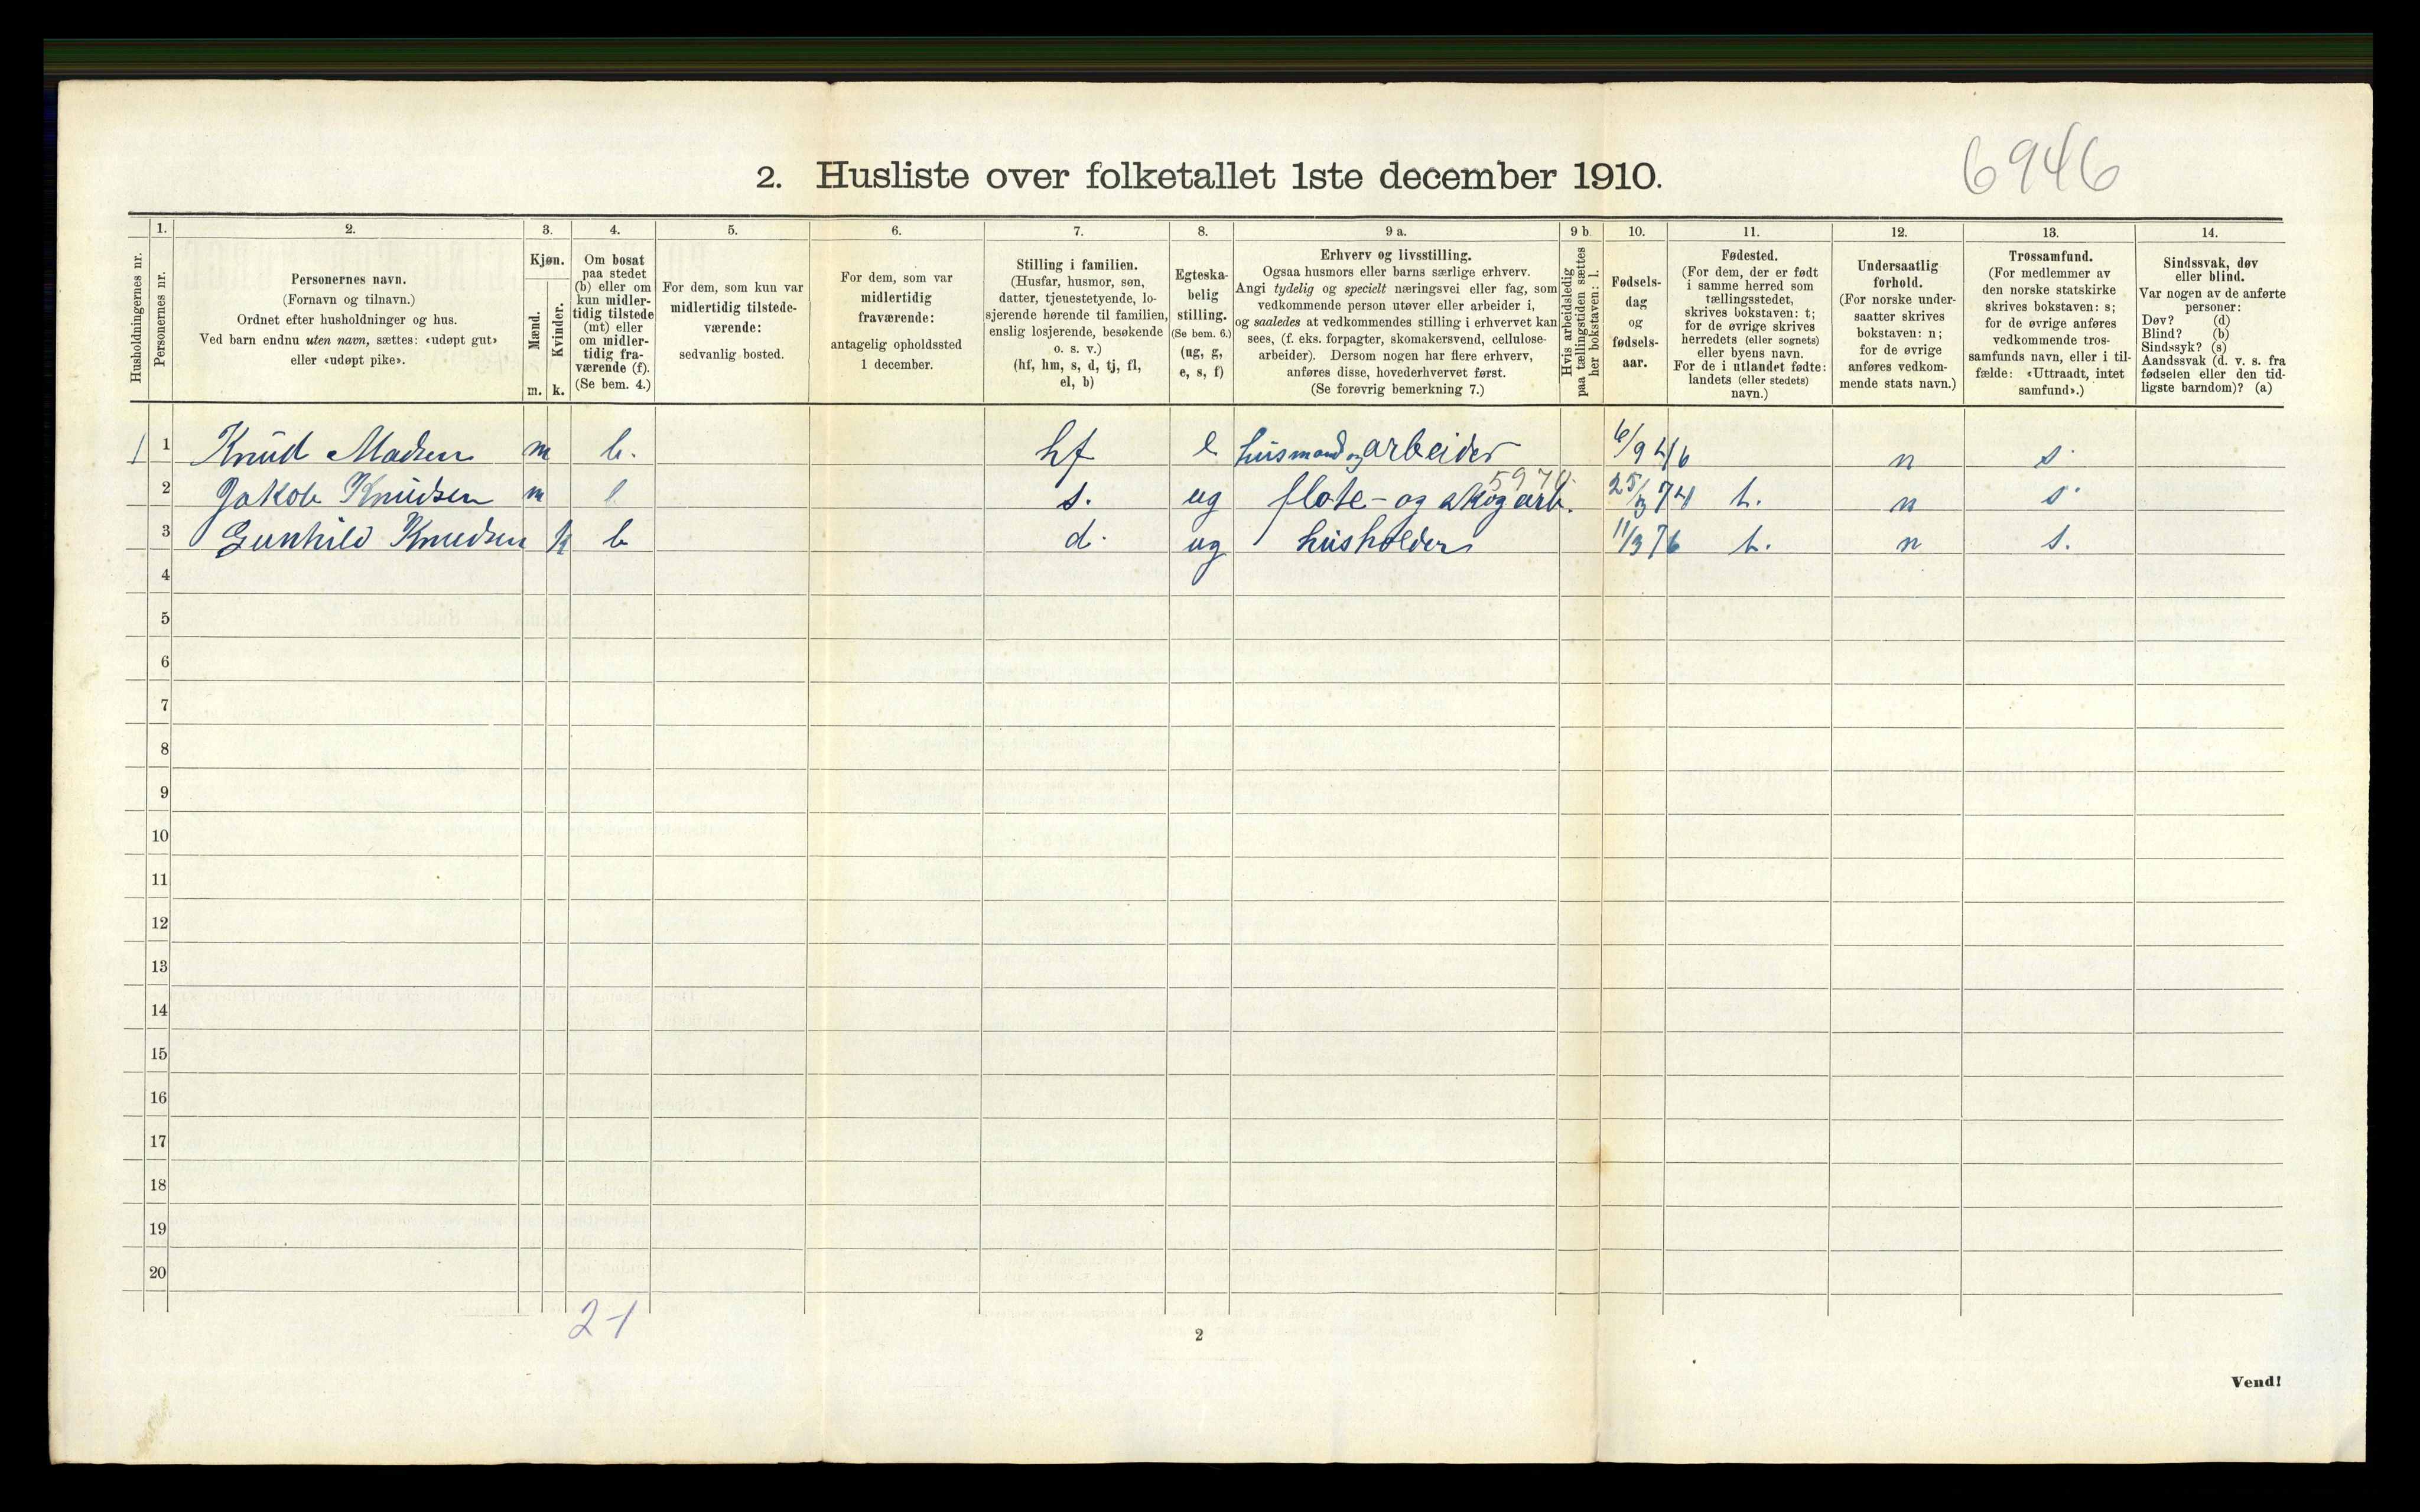 6946
2. Husliste over folketallet 1ste december 1910.
Husholdningernes nr.
1.
Personernes nr.
2.
Personernes navn.
(Fornavn og tilnavn.)
Ordnet efter husholdninger og hus.
Ved barn endnu uten navn, sættes: «udøpt gut»
eller «udøpt pike».
3.
Kjøn.
Mænd.
Kvinder.
m. k.
4.
Om bosat
paa stedet
(b) eller om
kun midler-
tidig tilstede
(mt) eller
om midler-
tidig fra-
værende (f).
(Se bem. 4.)
5.
For dem, som kun var
midlertidig tilstede-
værende:
sedvanlig bosted.
6.
For dem, som var
midlertidig
fraværende:
antagelig opholdssted
1 december.
7.
Stilling i familien.
(Husfar, husmor, søn,
datter, tjenestetyende, lo-
sjerende hørende til familien,
enslig losjerende, besøkende
o. s. v.)
(hf, hm, s, d, tj, fl,
el, b)
8.
Egteska-
belig
stilling.
(Se bem. 6.)
(ug, g,
e, s, f)
9 a.
Erhverv og livsstilling.
Ogsaa husmors eller barns særlige erhverv.
Angi tydelig og specielt næringsvei eller fag, som
vedkommende person utøver eller arbeider i,
og saaledes at vedkommendes stilling i erhvervet kan
sees, (f. eks. forpagter, skomakersvend, cellulose-
arbeider). Dersom nogen har flere erhverv,
anføres disse, hovederhvervet først.
(Se forøvrig bemerkning 7.)
9 b.
Hvis arbeidsledig
paa tællingstiden sættes
her bokstaven: l.
10.
Fødsels-
dag
og
fødsels-
aar.
11.
Fødested.
(For dem, der er født
i samme herred som
tællingsstedet,
skrives bokstaven: t;
for de øvrige skrives
herredets (eller sognets)
eller byens navn.
For de i utlandet fødte:
landets (eller stedets)
navn.)
12.
Undersaatlig
forhold.
(For norske under-
saatter skrives
bokstaven: n;
for de øvrige
anføres vedkom-
mende stats navn.)
13.
Trossamfund.
(For medlemmer av
den norske statskirke
skrives bokstaven: s;
for de øvrige anføres
vedkommende tros-
samfunds navn, eller i til-
fælde: «Uttraadt, intet
samfund».)
14.
Sindssvak, døv
eller blind.
Var nogen av de anførte
personer:
Døv? (d)
Blind? (b)
Sindssyk? (s)
Aandssvak (d. v. s. fra
fødselen eller den tid-
ligste barndom)? (a)
1 1 Knud Madsen m b. hf e husmand og arbeider 6/9 46 n s.
5970.
2 Jakob Knudsen m s. ug fløte- og skogarb. 74 t. n s.
3 Gunhild Knudsen k b d. ug husholder 11/3 76 t. n s.
4
5
6
7
8
9
10
11
12
13
14
15
16
17
18
19
20
2-1
2
Vend!